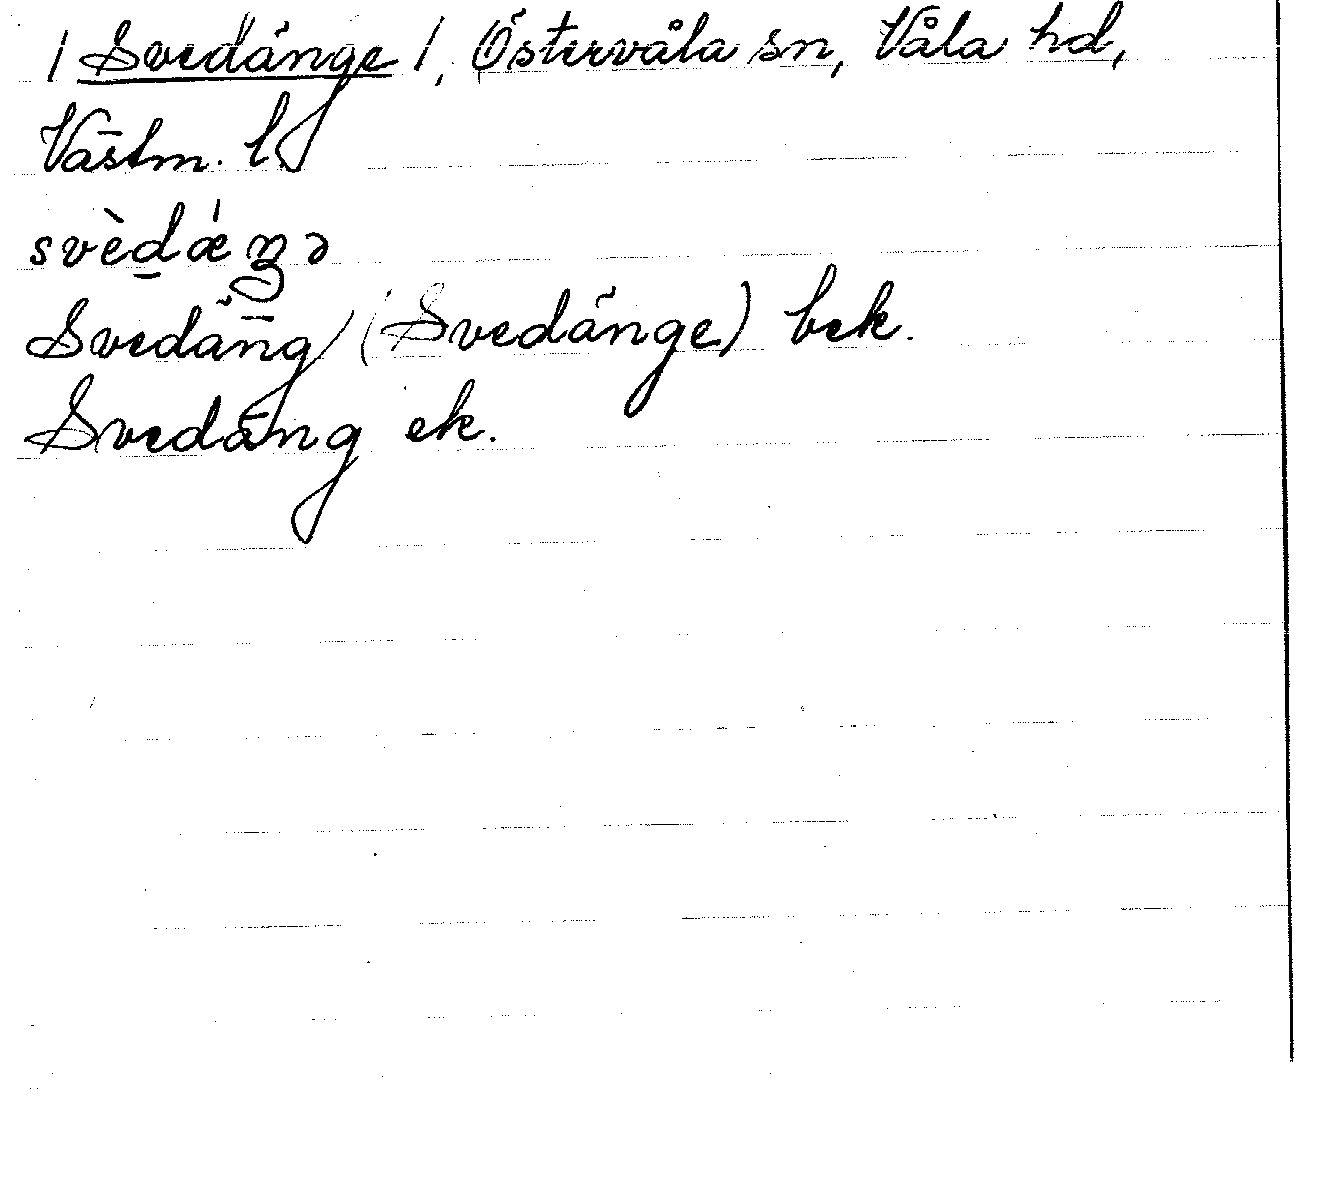 / Svedänge /, Östervåla sn, Våla hd,
Västm. l.
svèdǽŋə
Svedäng (Svedänge) bek.
Svedäng ek.